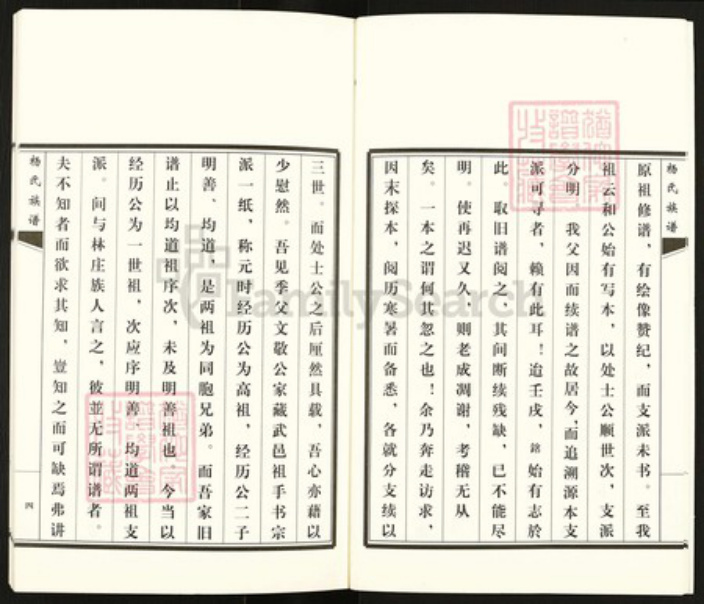 杨氏族谱
原祖修谱，有绘像赞纪，而支派未书。至我
祖云和公始有写本，以处士公顺世次，支派
分明。我父因而续谱之故居今，而追溯源本支
派可寻者，赖有此耳！迨壬戌，銘始有志於
此。取旧谱阅之，其间断续残缺，已不能尽
明。使再迟又久，则老成凋谢，考稽无从
矣。一本之谓何其忽之也！余乃奔走访求，
因末探本，阅历寒暑而备悉，各就分支续以
三世。而处士公之后厘然具载，吾心亦藉以
少慰然。吾见季父文敬公家藏武邑祖手书宗
派一纸，称元时经历公为高祖，经历公二子
明善、均道，是两祖为同胞兄弟。而吾家旧
谱止以均道祖序次，未及明善祖也。今当以
经历公为一世祖，次应序明善、均道两祖支
派。向与林庄族人言之，彼並无所谓谱者。
夫不知者而欲求其知，豈知之而可缺焉弗讲
杨氏族谱
四
FamilySearch